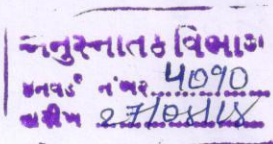 અનુસ્નાતક વિભાગ
ઇનવર્ડ નંબર 4090
તારીખ 27/04/18